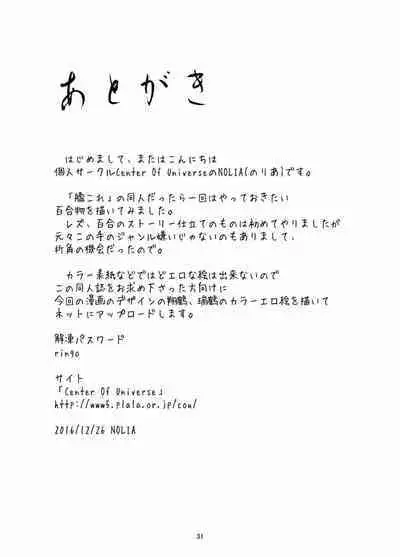 あとがき
はじめまして、またはこんにちは
個人サークルCenter Of UniverseのNOLIA(のりあ)です。
「艦これ」の同人だったら一回はやっておきたい
百合物を描いてみました。
レズ、百合のストーリー仕立てのものは初めてやりましたが
元々この手のジャンル嫌いじゃないのもありまして、
折角の機会だったので。
カラー表紙などではどエロな絵は出来ないので
この同人誌をお求め下さった方向けに
今回の漫画のデザインの翔鶴、瑞鶴のカラーエロ絵を描いて
ネットにアップロードします。
解凍パスワード
ringo
サイト
「Center Of Universe」
http://www5.plala.or.jp/cou/
2016/12/26 NOLIA
31